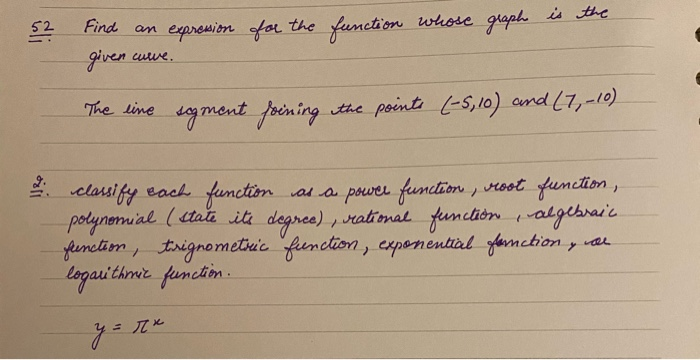 52 Find an expression for the function whose graph is the
given curve.
The line segment joining the points (-5,10) and (7,-10)
2. classify each function as a power function, root function,
polynomial (state its degree), rational function, algebraic
function, trignometric function, exponential function, or
logarithmic function.
y = π^x